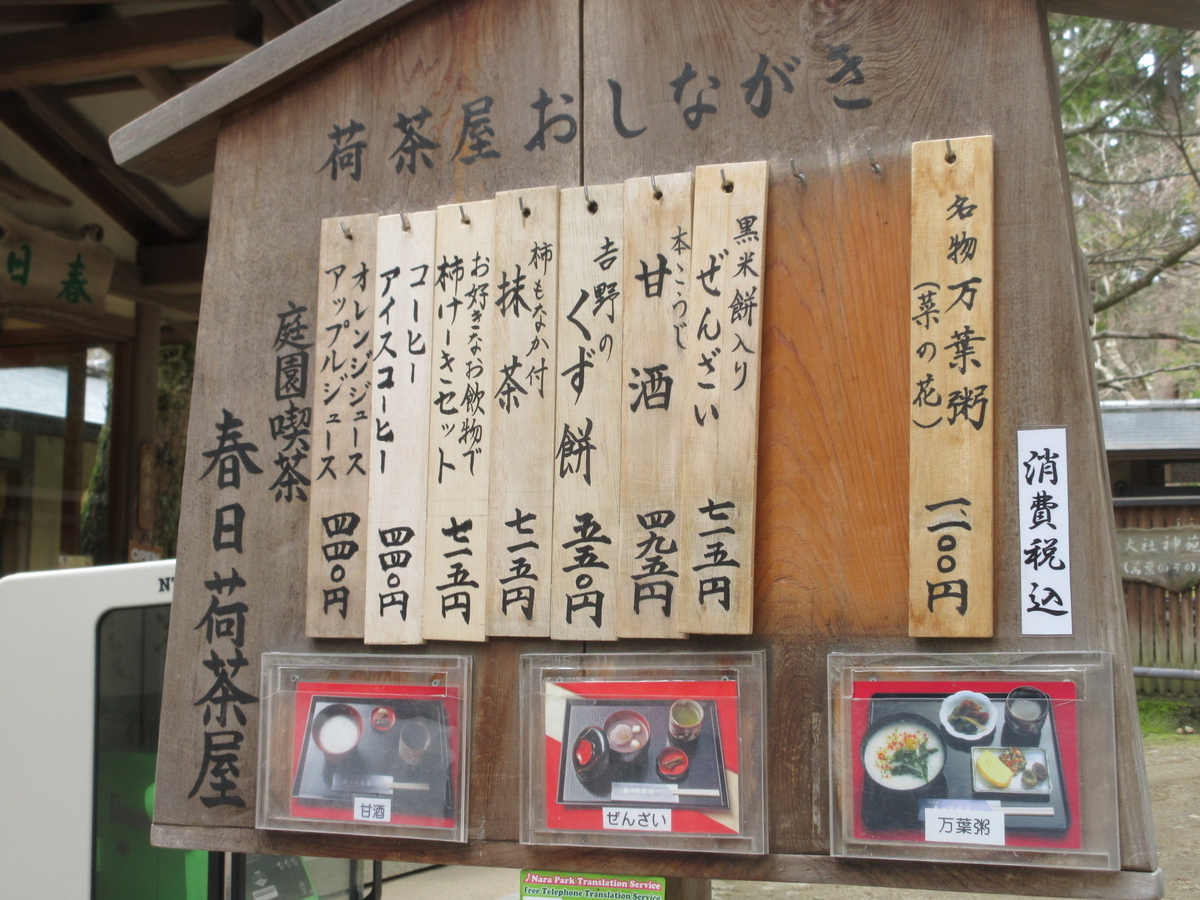 荷茶屋おしながき
名物万葉粥
(菜の花)
一、一〇〇円
消費税込
黒米餅入り
ぜんざい
七一五円
本こうじ
甘酒
四九五円
吉野の
くず餅
五五〇円
柿もなか付
抹茶
七一五円
お好きなお飲物で
柿けーきセット
七一五円
コーヒー
アイスコーヒー
四四〇円
オレンジジュース
アップルジュース
四四〇円
庭園喫茶
春日荷茶屋
甘酒
ぜんざい
万葉粥
春日
大社神苑
Nara Park Translation Service
Free Telephone Translation Service